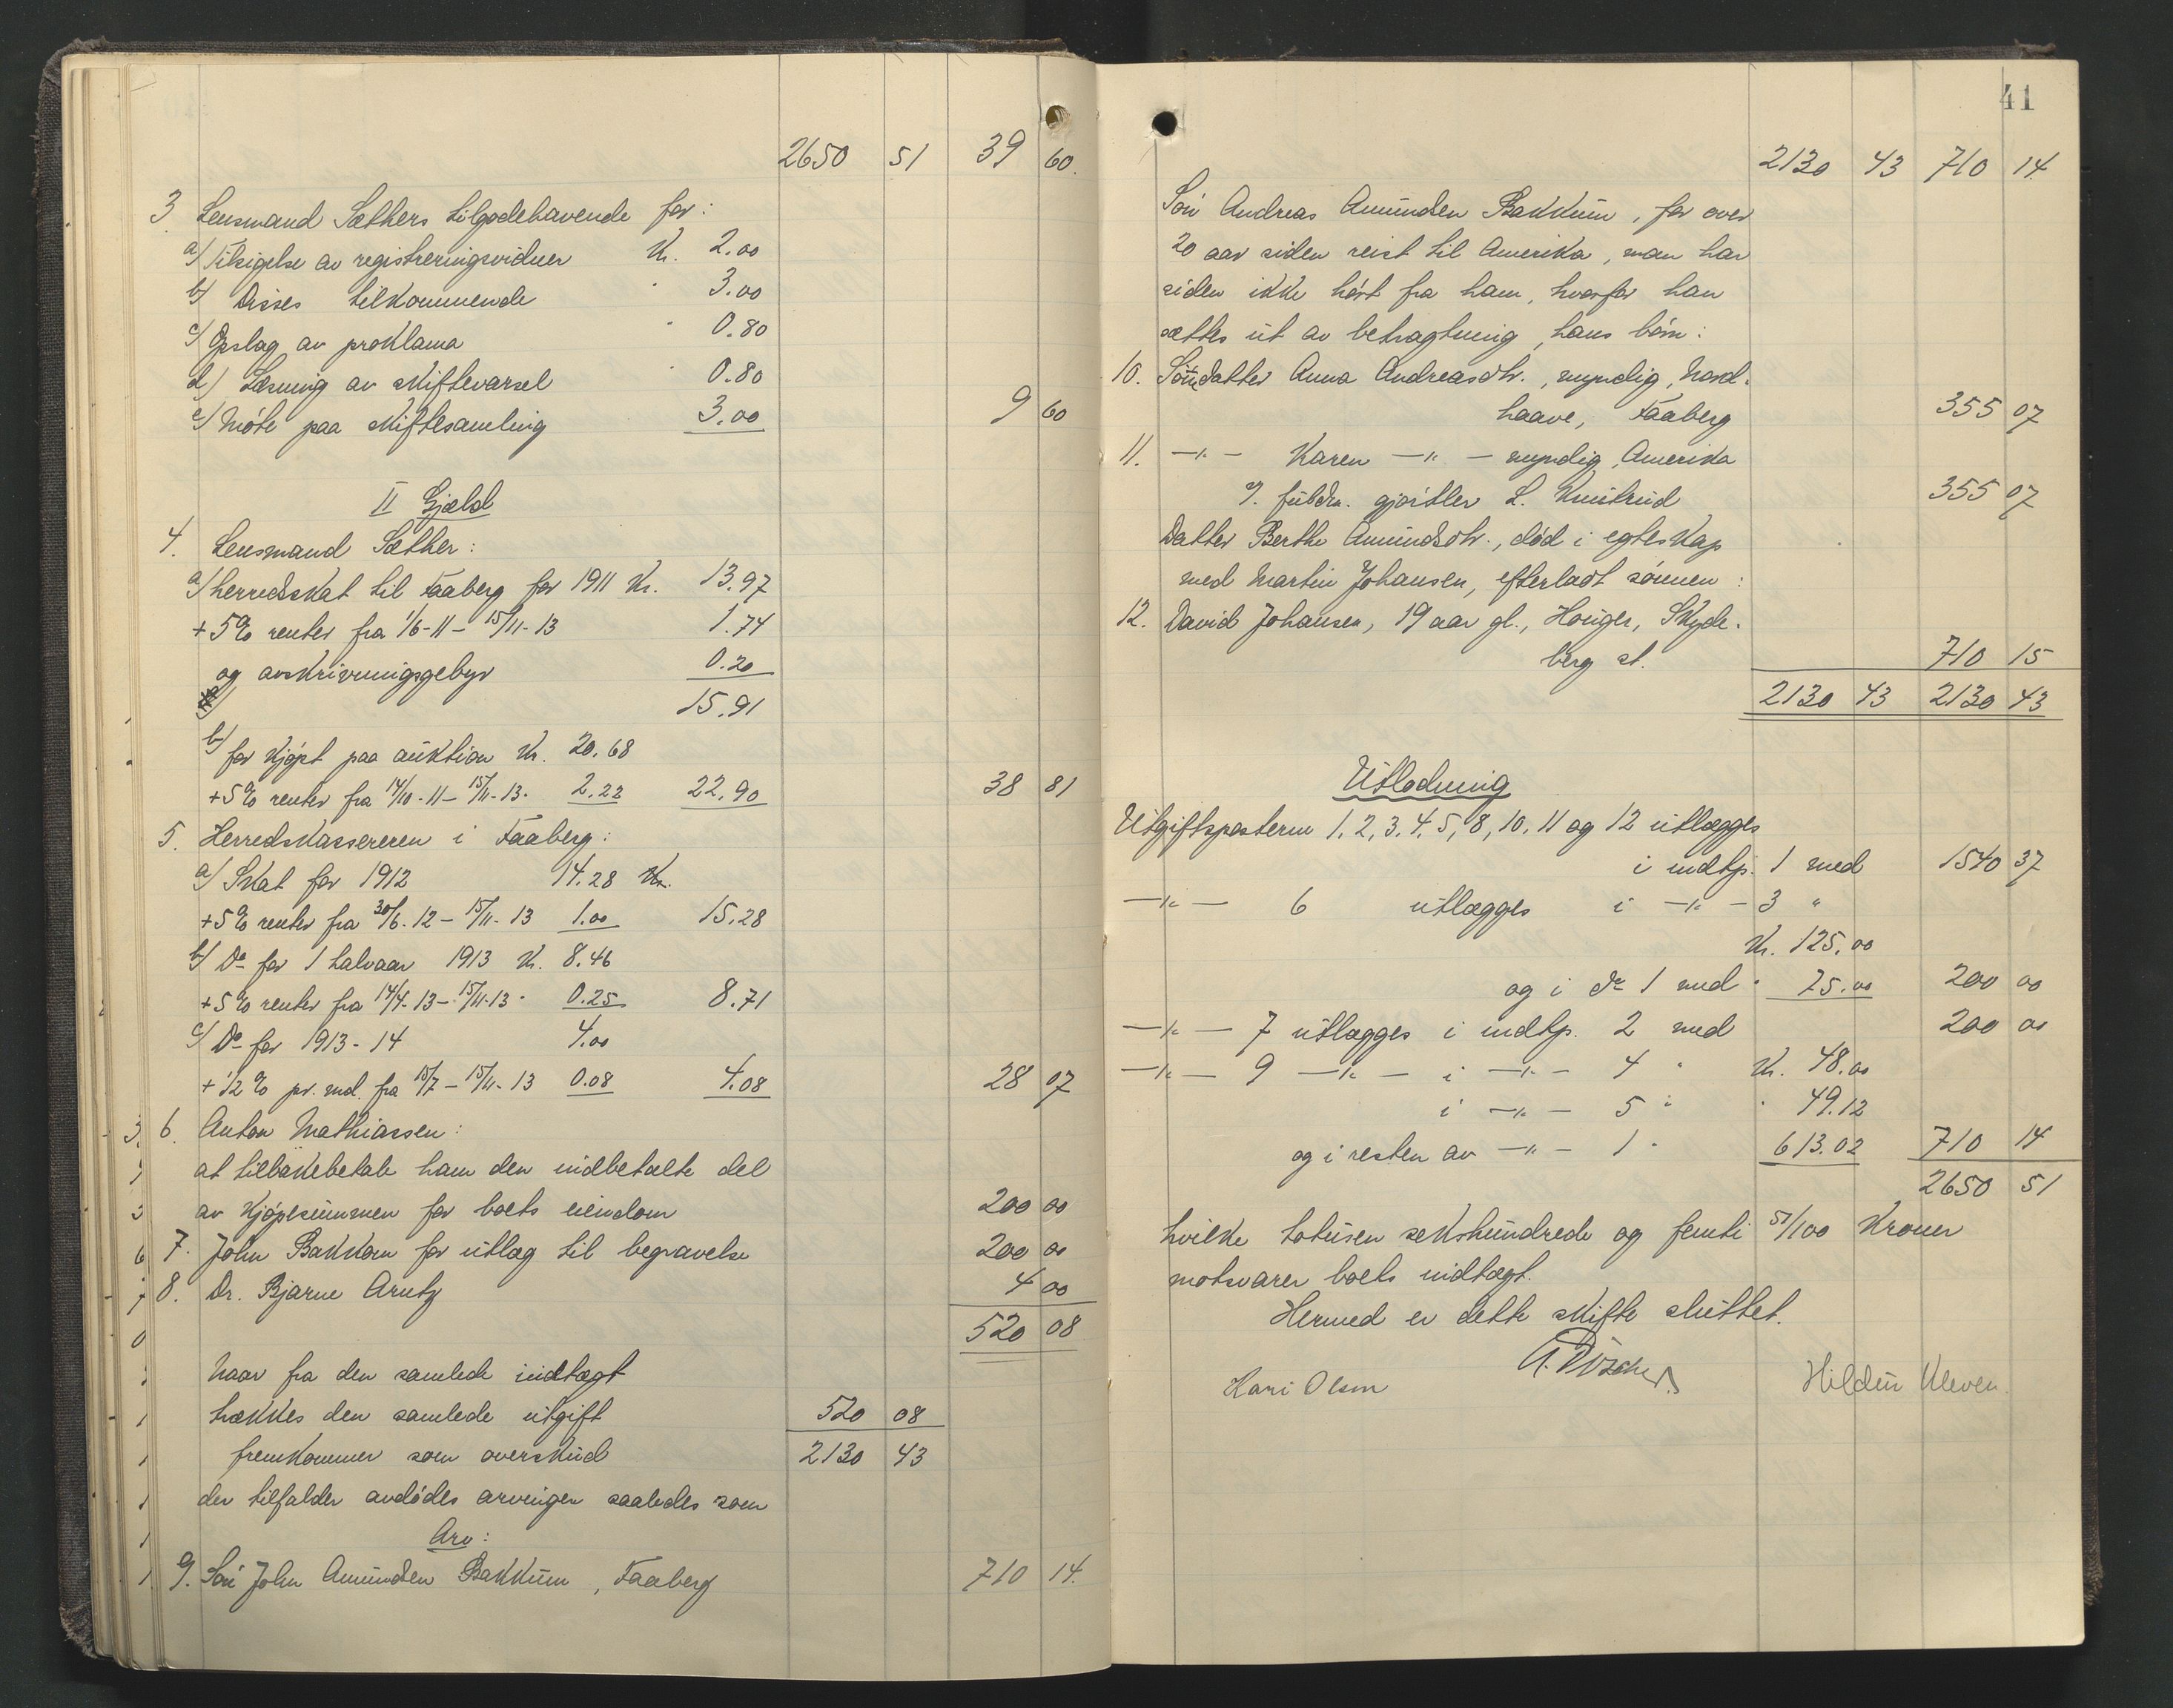 2650 51 39 60.
3. Lensmand Sæthers tilgodehavende for:
a/ Tilsigelse av registreringsvidner Kr. 2.00
b/ Disses tilkommende " 3.00
c/ Opslag av proklama " 0.80
d/ Læsning av skiftevarsel " 0.80
e/ Møte paa skiftesamling 3.00 9 60
II Gjæld
4. Lensmand Sæther:
a/ herredskat til Faaberg for 1911 Kr. 13.97
+ 5% renter fra 1/6-11 - 15/11-13 1.74
og avskrivningsgebyr 0.20
15.91
b/ for kjøpt paa auktion Kr. 20.68
+ 5% renter fra 14/10-11 - 15/11-13. 2.22 22.90 38 81
5. Herredskassereren i Faaberg:
a/ Skat for 1912 14.28 Kr.
+ 5% renter fra 30/6.12 - 15/11-13 1.00 15.28
b/ Do for 1 halvaar 1913 Kr. 8.46
+ 5% renter fra 14/4-13 - 15/11-13 " 0.25 8.71
c/ Do for 1913-14 4.00
+ 1/2% pr. md. fra 15/7 - 15/11-13 0.08 4.08 28 07
6. Anton Mathiassen:
at tilbakebetale ham den indbetalte del
av kjøpesummen for boets eiendom 200 00
7. John Bakkom for utlæg til begravelse 200 00
8. Dr. Bjarne Arntz 4 00
520 08
Naar fra den samlede indtægt
trækkes den samlede utgift 520 08
fremkommer som overskud 2130 43
der tilfalder avdødes arvinger saaledes som
Arv:
9. Søn John Amundsen Bakkum, Faaberg 710 14.
41
2130 43 710 14
Søn Andreas Amundsen Bakkum, for over
20 aar siden reist til Amerika, man har
siden ikke hørt fra ham, hvorfor han
sættes ut av betragtning, hans børn:
10. Sønnedatter Anna Andreasdtr., myndig, Nord-
haave, Faaberg 355 07
11. -"- Karen -"- myndig, Amerika
v. fuldm. gjørtler L. Knutrud 355 07
Datter Berthe Amundsdtr., død i egteskap
med Martin Johansen, efterladt sønnen:
12. David Johansen, 19 aar gl., Houger, Skyde-
berg st. 710 15
2130 43 2130 43
Utlodning
Utgiftsposterne 1, 2, 3, 4, 5, 8, 10, 11 og 12 utlægges
i indtp. 1 med 1540 37
-"- 6 utlægges i -"- 3 "
Kr. 125.00
og i do 1 med " 75.00 200 00
-"- 7 utlægges i indtp. 2 med 200 00
-"- 9 -"- i -"- 4 " Kr. 48.00
i -"- 5 " " 49.12
og i resten av -"- 1 " 613.02 710 14
2650 51
hvilke totusen sekshundrede og femti 51/100 kroner
motsvarer boets indtægt.
Hermed er dette skifte sluttet.
Hans Olsen